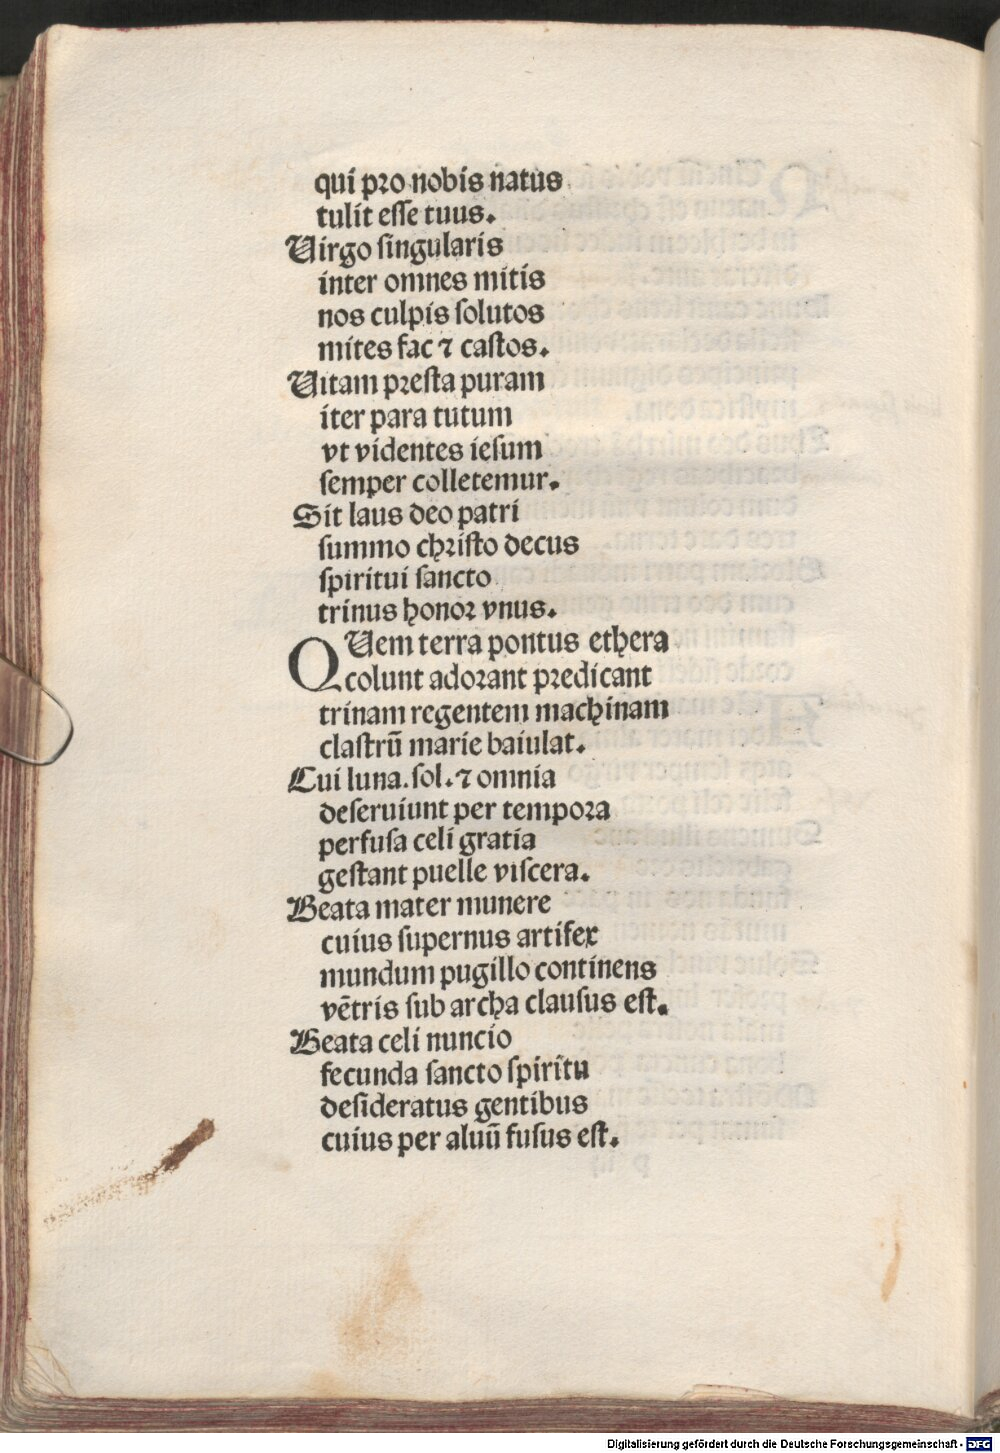 qui pro nobis natus
tulit esse tuus.
Uirgo singularis
inter omnes mitis
nos culpis solutos
mites fac ⁊ castos.
Uitam presta puram
iter para tutum
vt videntes iesum
semper colletemur.
Sit laus deo patri
summo christo decus
spiritui sancto
trinus honor vnus.
QUem terra pontus ethera
colunt adorant predicant
trinam regentem machinam
clastrū marie baiulat.
Cui luna. sol. ⁊ omnia
deseruiunt per tempora
perfusa celi gratia
gestant puelle viscera.
Beata mater munere
cuius supernus artifex
mundum pugillo continens
vētris sub archa clausus est.
Beata celi nuncio
fecunda sancto spiritu
desideratus gentibus
cuius per aluū fusus est.
Digitalisierung gefördert durch die Deutsche Forschungsgemeinschaft - DFG